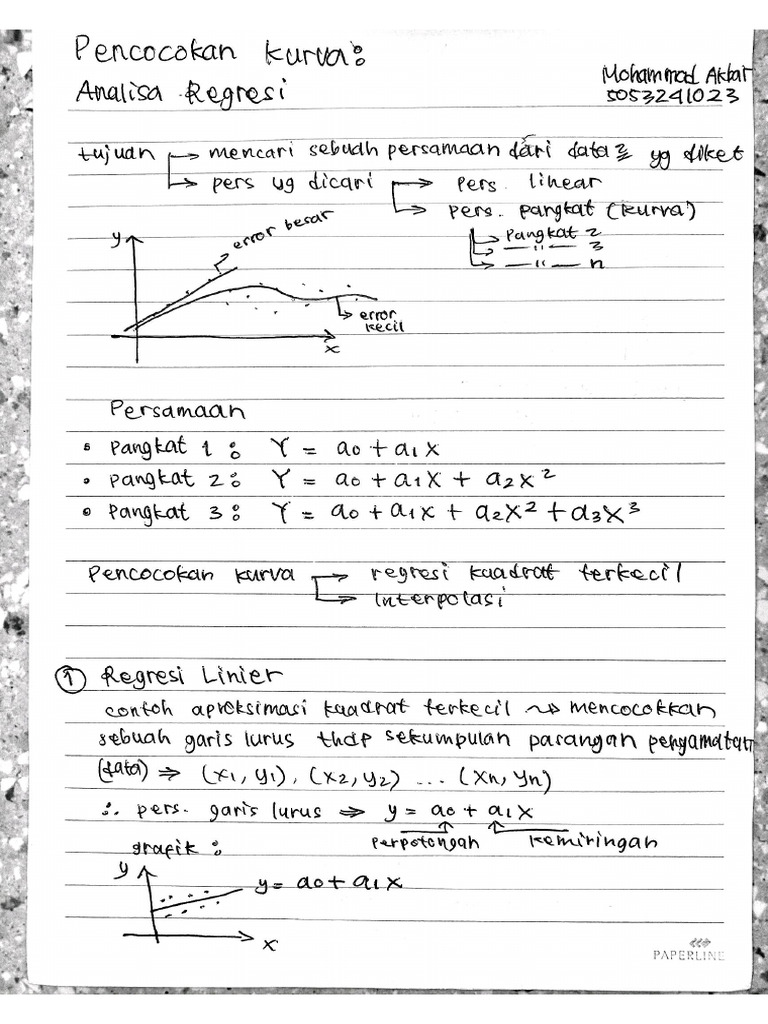 Pencocokan kurva:
Analisa Regresi
Mohammad Akbar
5053241023
tujuan → mencari sebuah persamaan dari data2 yg diket
→ pers yg dicari → pers. linear
→ pers. pangkat (kurva)
→ Pangkat 2
→ — " — 3
→ — " — n
y
error besar
error kecil
x
Persamaan
• Pangkat 1 : Y = a0 + a1x
• Pangkat 2 : Y = a0 + a1x + a2x²
• Pangkat 3 : Y = a0 + a1x + a2x² + a3x³
Pencocokan kurva → regresi kuadrat terkecil
→ Interpolasi
① Regresi Linier
contoh aproksimasi kuadrat terkecil ↝ mencocokkan
sebuah garis lurus thdp sekumpulan pasangan pengamatan
(data) ⇒ (x1, y1), (x2, y2) ... (xn, yn)
∴ pers. garis lurus ⇒ y = a0 + a1x
perpotongan kemiringan
grafik :
y
y = a0 + a1x
x
PAPERLINE